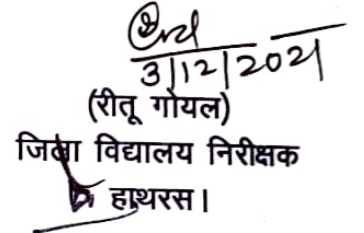 3/12/2021
(रीतू गोयल)
जिला विद्यालय निरीक्षक
हाथरस।